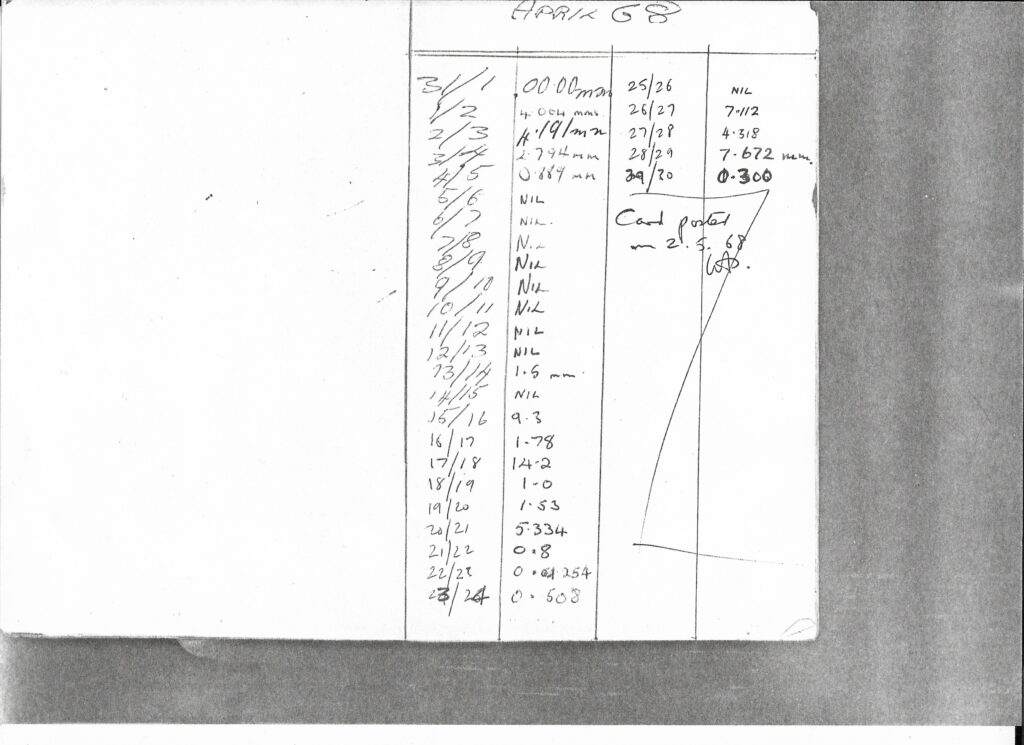 APRIL 68
31/1 00.00mm
1/2 4.064 mms.
2/3 4.191mm
3/4 2.794mm
4/5 0.889 mm
5/6 NIL
6/7 NIL.
7/8 NIL
8/9 NIL
9/10 NIL
10/11 NIL
11/12 NIL
12/13 NIL
13/14 1.5 mm.
14/15 NIL
15/16 9.3
16/17 1.78
17/18 14.2
18/19 1.0
19/20 1.53
20/21 5.334
21/22 0.8
22/23 0.254
23/24 0.508
25/26 NIL
26/27 7.112
27/28 4.318
28/29 7.672 mm.
29/30 0.300
Card posted
on 2.5.68